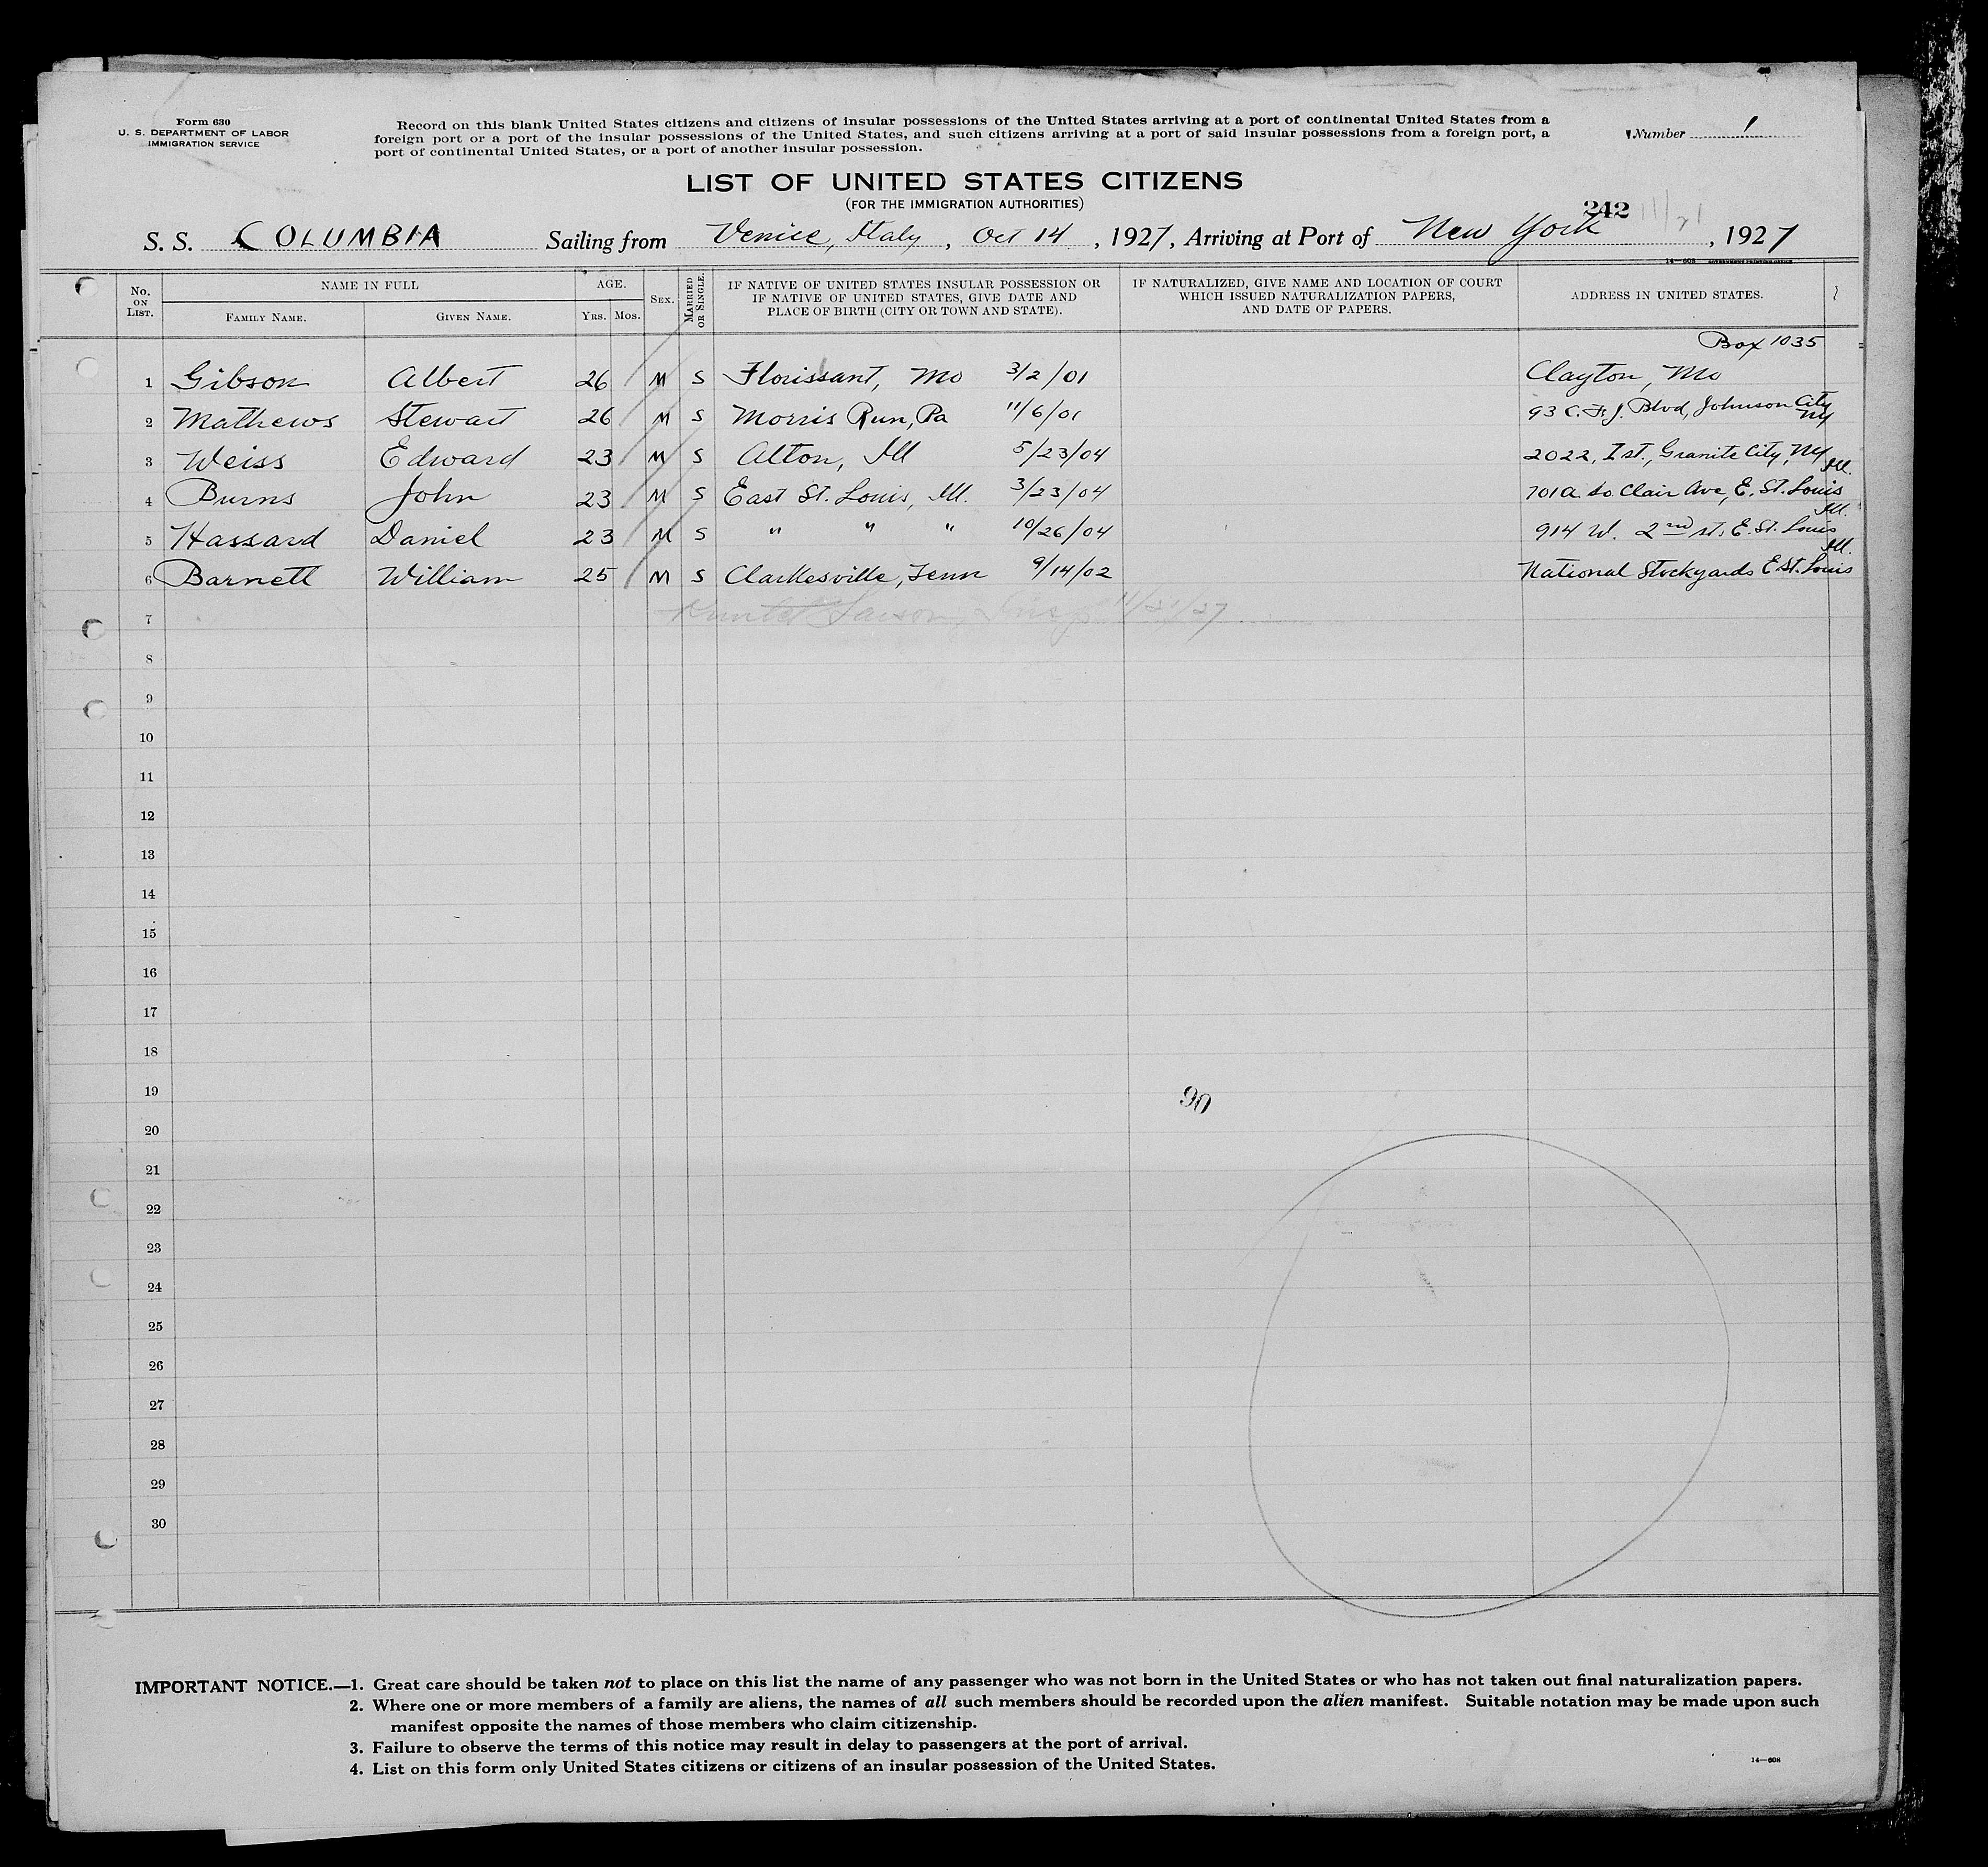 Form 630
U. S. DEPARTMENT OF LABOR
IMMIGRATION SERVICE
Record on this blank United States citizens and citizens of insular possessions of the United States arriving at a port of continental United States from a
foreign port or a port of the insular possessions of the United States, and such citizens arriving at a port of said insular possessions from a foreign port, a
port of continental United States, or a port of another insular possession.
Number 1
LIST OF UNITED STATES CITIZENS
(FOR THE IMMIGRATION AUTHORITIES)
242 11/21
S. S. COLUMBIA Sailing from Venice, Italy, Oct 14, 1927, Arriving at Port of New York, 1927
14—608 GOVERNMENT PRINTING OFFICE
No. ON LIST. NAME IN FULL AGE. SEX. MARRIED OR SINGLE. IF NATIVE OF UNITED STATES INSULAR POSSESSION OR IF NATIVE OF UNITED STATES, GIVE DATE AND PLACE OF BIRTH (CITY OR TOWN AND STATE). IF NATURALIZED, GIVE NAME AND LOCATION OF COURT WHICH ISSUED NATURALIZATION PAPERS, AND DATE OF PAPERS. ADDRESS IN UNITED STATES.
FAMILY NAME. GIVEN NAME. YRS. MOS.
Box 1035
1 Gibson Albert 26 M S Florissant, Mo 3/2/01 Clayton, Mo
2 Mathews Stewart 26 M S Morris Run, Pa 11/6/01 93 C. F. J. Blvd, Johnson City NY
3 Weiss Edward 23 M S Alton, Ill 5/23/04 2022, I st., Granite City, NY
Ill.
4 Burns John 23 M S East St. Louis, Ill. 3/23/04 701a So Clair Ave, E. St. Louis
Ill.
5 Hassard Daniel 23 M S " " " 10/26/04 914 W. 2nd st, E. St. Louis
Ill.
6 Barnett William 25 M S Clarkesville, Tenn 9/14/02 National Stockyards E. St. Louis
7 11/21/27
8
9
10
11
12
13
14
15
16
17
18
19
90
20
21
22
23
24
25
26
27
28
29
30
IMPORTANT NOTICE.—1. Great care should be taken not to place on this list the name of any passenger who was not born in the United States or who has not taken out final naturalization papers.
2. Where one or more members of a family are aliens, the names of all such members should be recorded upon the alien manifest. Suitable notation may be made upon such
manifest opposite the names of those members who claim citizenship.
3. Failure to observe the terms of this notice may result in delay to passengers at the port of arrival.
4. List on this form only United States citizens or citizens of an insular possession of the United States.
14—608